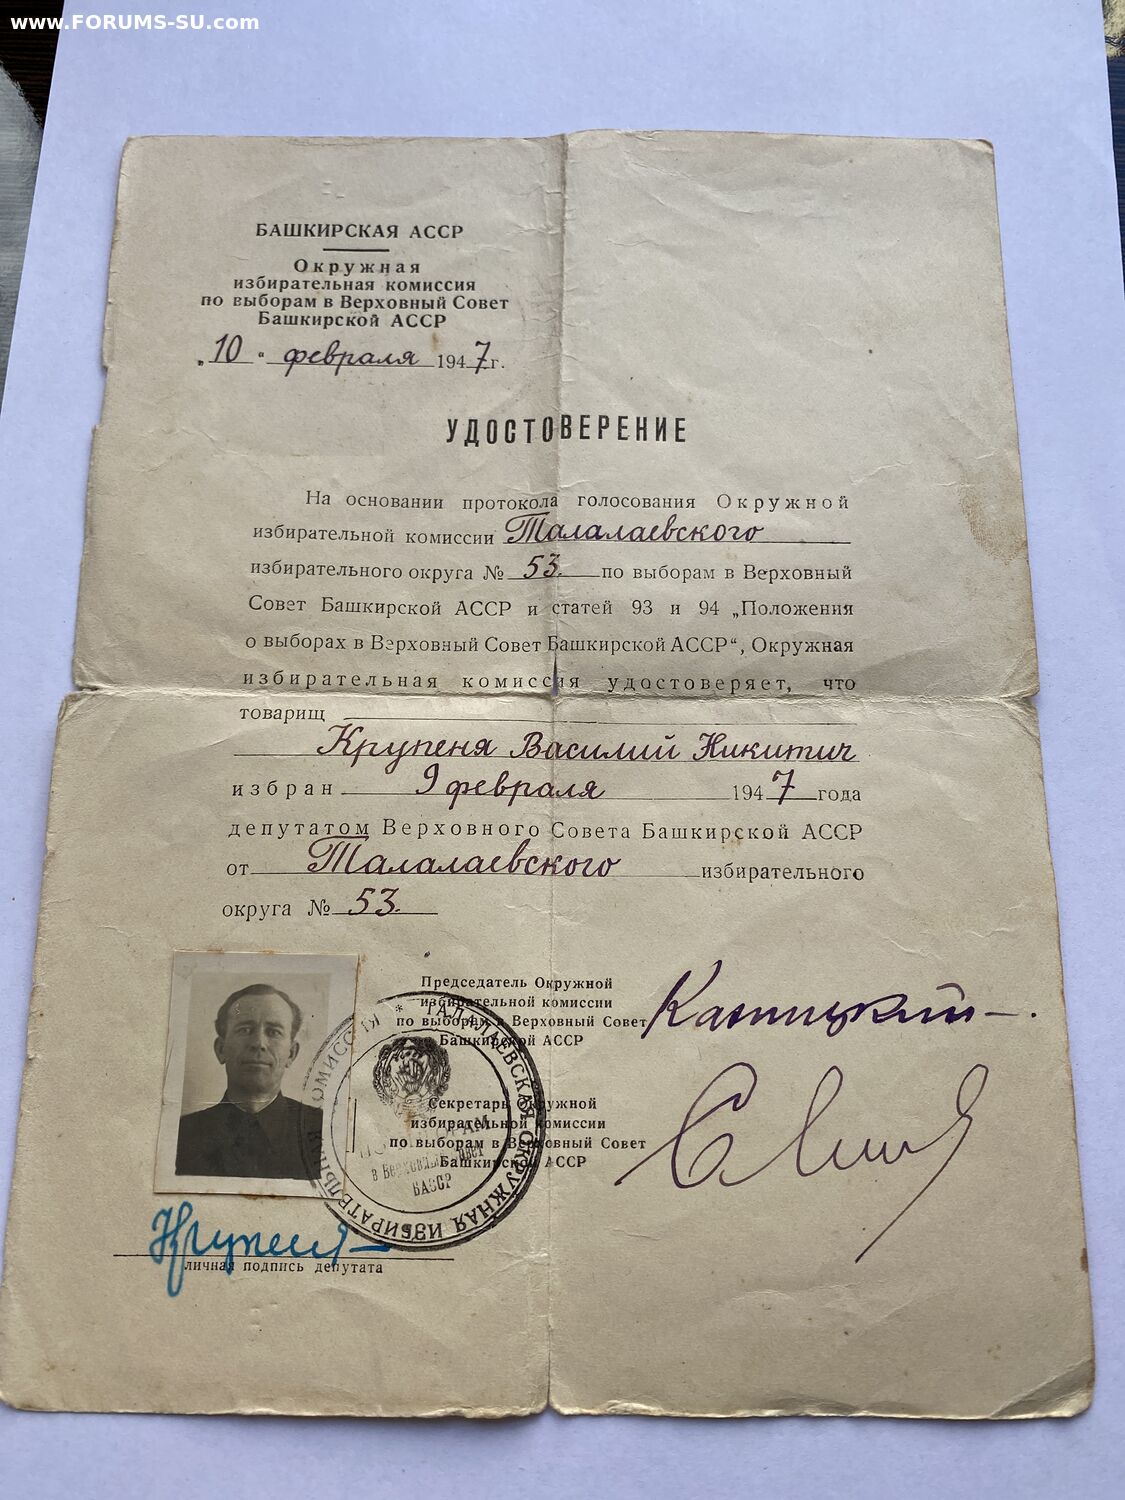 www.FORUMS-SU.com
БАШКИРСКАЯ АССР
Окружная
избирательная комиссия
по выборам в Верховный Совет
Башкирской АССР
„10“ февраля 1947 г.
УДОСТОВЕРЕНИЕ
На основании протокола голосования Окружной
избирательной комиссии Талалаевского
избирательного округа № 53. по выборам в Верховный
Совет Башкирской АССР и статей 93 и 94 „Положения
о выборах в Верховный Совет Башкирской АССР“, Окружная
избирательная комиссия удостоверяет, что
товарищ
Крупеня Василий Никитич
избран 9 февраля 1947 года
депутатом Верховного Совета Башкирской АССР
от Талалаевского избирательного
округа № 53.
Председатель Окружной
избирательной комиссии
по выборам в Верховный Совет
Башкирской АССР
Секретарь Окружной
избирательной комиссии
по выборам в Верховный Совет
Башкирской АССР
* ТАЛАЛАЕВСКАЯ ОКРУЖНАЯ ИЗБИРАТЕЛЬНАЯ КОМИССИЯ
ПО ВЫБОРАМ
в Верховный Совет
БАССР
Крупеня
личная подпись депутата